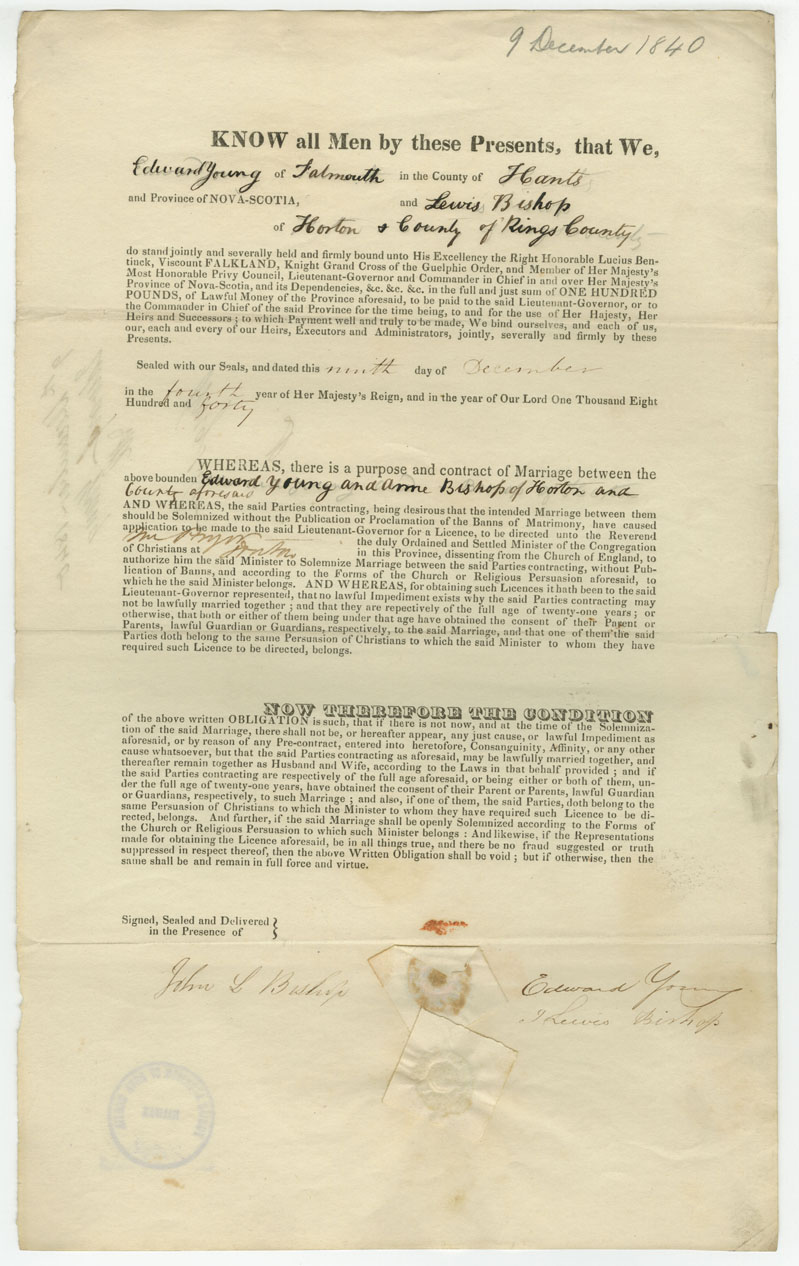 9 December 1840
KNOW all Men by these Presents, that We,
Edward Young of Falmouth in the County of Hants
and Province of NOVA-SCOTIA, and Lewis Bishop
of Horton & County of Kings County
do stand jointly and severally held and firmly bound unto His Excellency the Right Honorable Lucius Ben-
tinck, Viscount FALKLAND, Knight Grand Cross of the Guelphic Order, and Member of Her Majesty's
Most Honorable Privy Council, Lieutenant-Governor and Commander in Chief in and over Her Majesty's
Province of Nova-Scotia, and its Dependencies, &c. &c. &c. in the full and just sum of ONE HUNDRED
POUNDS, of Lawful Money of the Province aforesaid, to be paid to the said Lieutenant-Governor, or to
the Commander in Chief of the said Province for the time being, to and for the use of Her Hajesty, Her
Heirs and Successors ; to which Payment well and truly to be made, We bind ourselves, and each of us,
our, each and every of our Heirs, Executors and Administrators, jointly, severally and firmly by these
Presents.
Sealed with our Seals, and dated this ninth day of December
in the fourth year of Her Majesty's Reign, and in the year of Our Lord One Thousand Eight
Hundred and forty
WHEREAS, there is a purpose and contract of Marriage between the
above bounden Edward Young and Anne Bishop of Horton and
County aforesaid
AND WHEREAS, the said Parties contracting, being desirous that the intended Marriage between them
should be Solemnized without the Publication or Proclamation of the Banns of Matrimony, have caused
application to be made to the said Lieutenant-Governor for a Licence, to be directed unto the Reverend
the duly Ordained and Settled Minister of the Congregation
of Christians at Horton in this Province, dissenting from the Church of England, to
authorize him the said Minister to Solemnize Marriage between the said Parties contracting, without Pub-
lication of Banns, and according to the Forms of the Church or Religious Persuasion aforesaid, to
which he the said Minister belongs. AND WHEREAS, for obtaining such Licences it hath been to the said
Lieutenant-Governor represented, that no lawful Impediment exists why the said Parties contracting may
not be lawfully married together ; and that they are repectively of the full age of twenty-one years ; or
otherwise, that both or either of them being under that age have obtained the consent of their Parent or
Parents, lawful Guardian or Guardians, respectively, to the said Marriage, and that one of them the said
Parties doth belong to the same Persuasion of Christians to which the said Minister to whom they have
required such Licence to be directed, belongs.
NOW THEREFORE THE CONDITION
of the above written OBLIGATION is such, that if there is not now, and at the time of the Solemniza-
tion of the said Marriage, there shall not be, or hereafter appear, any just cause, or lawful Impediment as
aforesaid, or by reason of any Pre-contract, entered into heretofore, Consanguinity, Affinity, or any other
cause whatsoever, but that the said Parties contracting as aforesaid, may be lawfully married together, and
thereafter remain together as Husband and Wife, according to the Laws in that behalf provided ; and if
the said Parties contracting are respectively of the full age aforesaid, or being either or both of them, un-
der the full age of twenty-one years, have obtained the consent of their Parent or Parents, lawful Guardian
or Guardians, respectively, to such Marriage ; and also, if one of them, the said Parties, doth belong to the
same Persuasion of Christians to which the Minister to whom they have required such Licence to be di-
rected, belongs. And further, if the said Marriage shall be openly Solemnized according to the Forms of
the Church or Religious Persuasion to which such Minister belongs : And likewise, if the Representations
made for obtaining the Licence aforesaid, be in all things true, and there be no fraud suggested or truth
suppressed in respect thereof, then the above Written Obligation shall be void ; but if otherwise, then the
same shall be and remain in full force and virtue.
Signed, Sealed and Delivered
in the Presence of
John L Bishop
Edward Young
Lewis Bishop